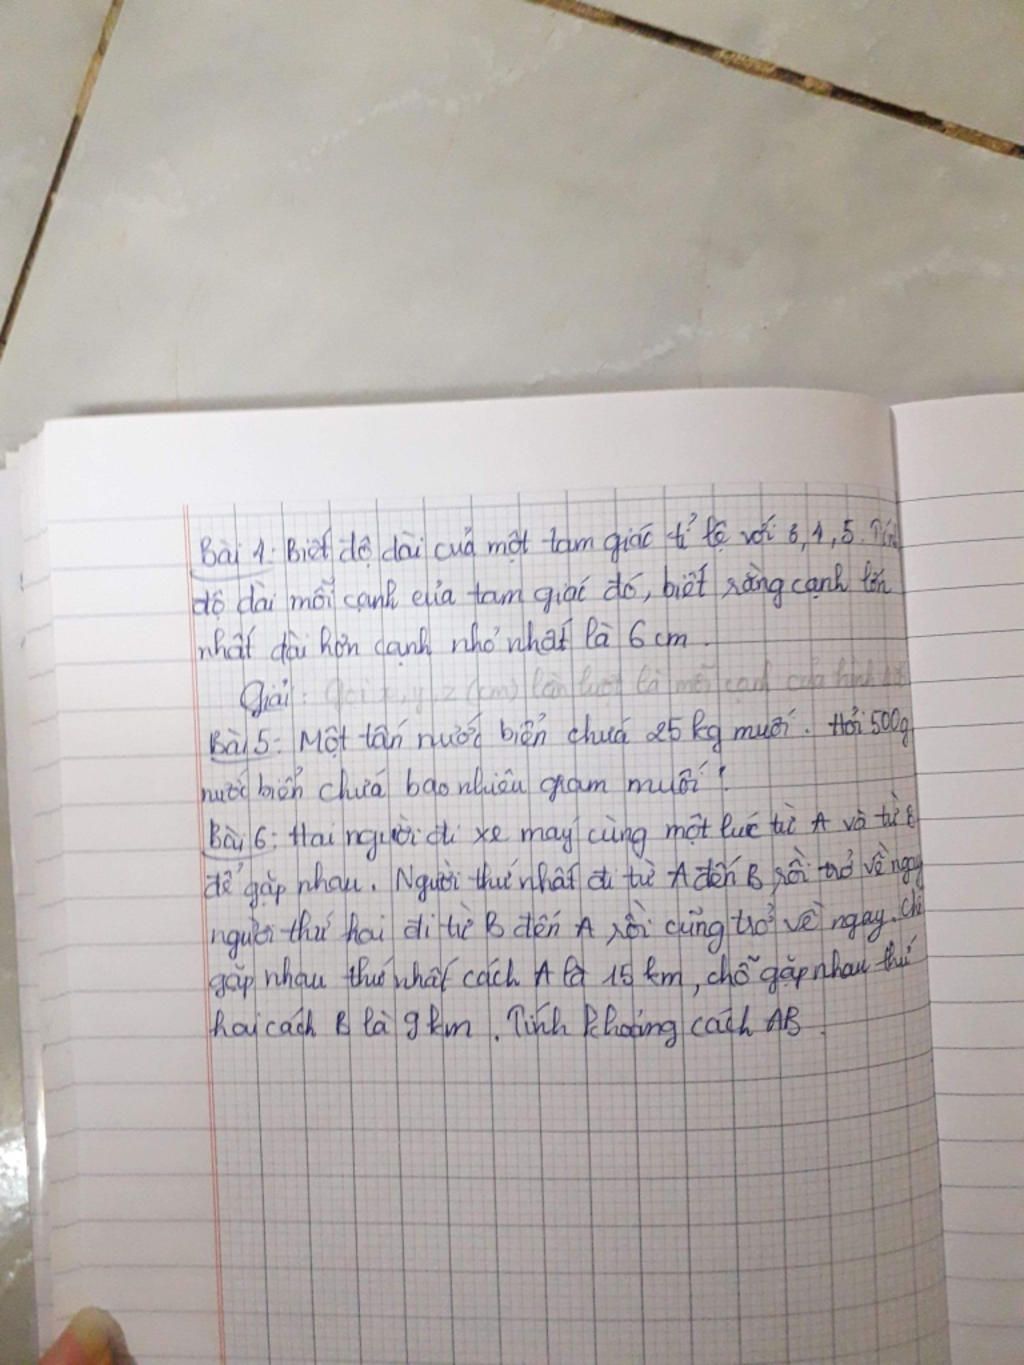 Bài 1: Biết độ dài cuả một tam giác tỉ lệ với 3,4,5. Tính
độ dài mỗi cạnh của tam giác đó, biết rằng cạnh lớn
nhất dài hơn cạnh nhỏ nhất là 6 cm.
Giải: Gọi x, y, z (cm) lần lượt là mỗi cạnh của hình
Bài 5: Một tấn nước biển chứa 25 kg muối. Hỏi 500g
nước biển chứa bao nhiêu gam muối?
Bài 6: Hai người đi xe máy cùng một lúc từ A và từ B
để gặp nhau. Người thứ nhất đi từ A đến B rồi trở về ngay
người thứ hai đi từ B đến A rồi cũng trở về ngay.
gặp nhau thứ nhất cách A là 15 km, chỗ gặp nhau thứ
hai cách B là 9 km. Tính khoảng cách AB.